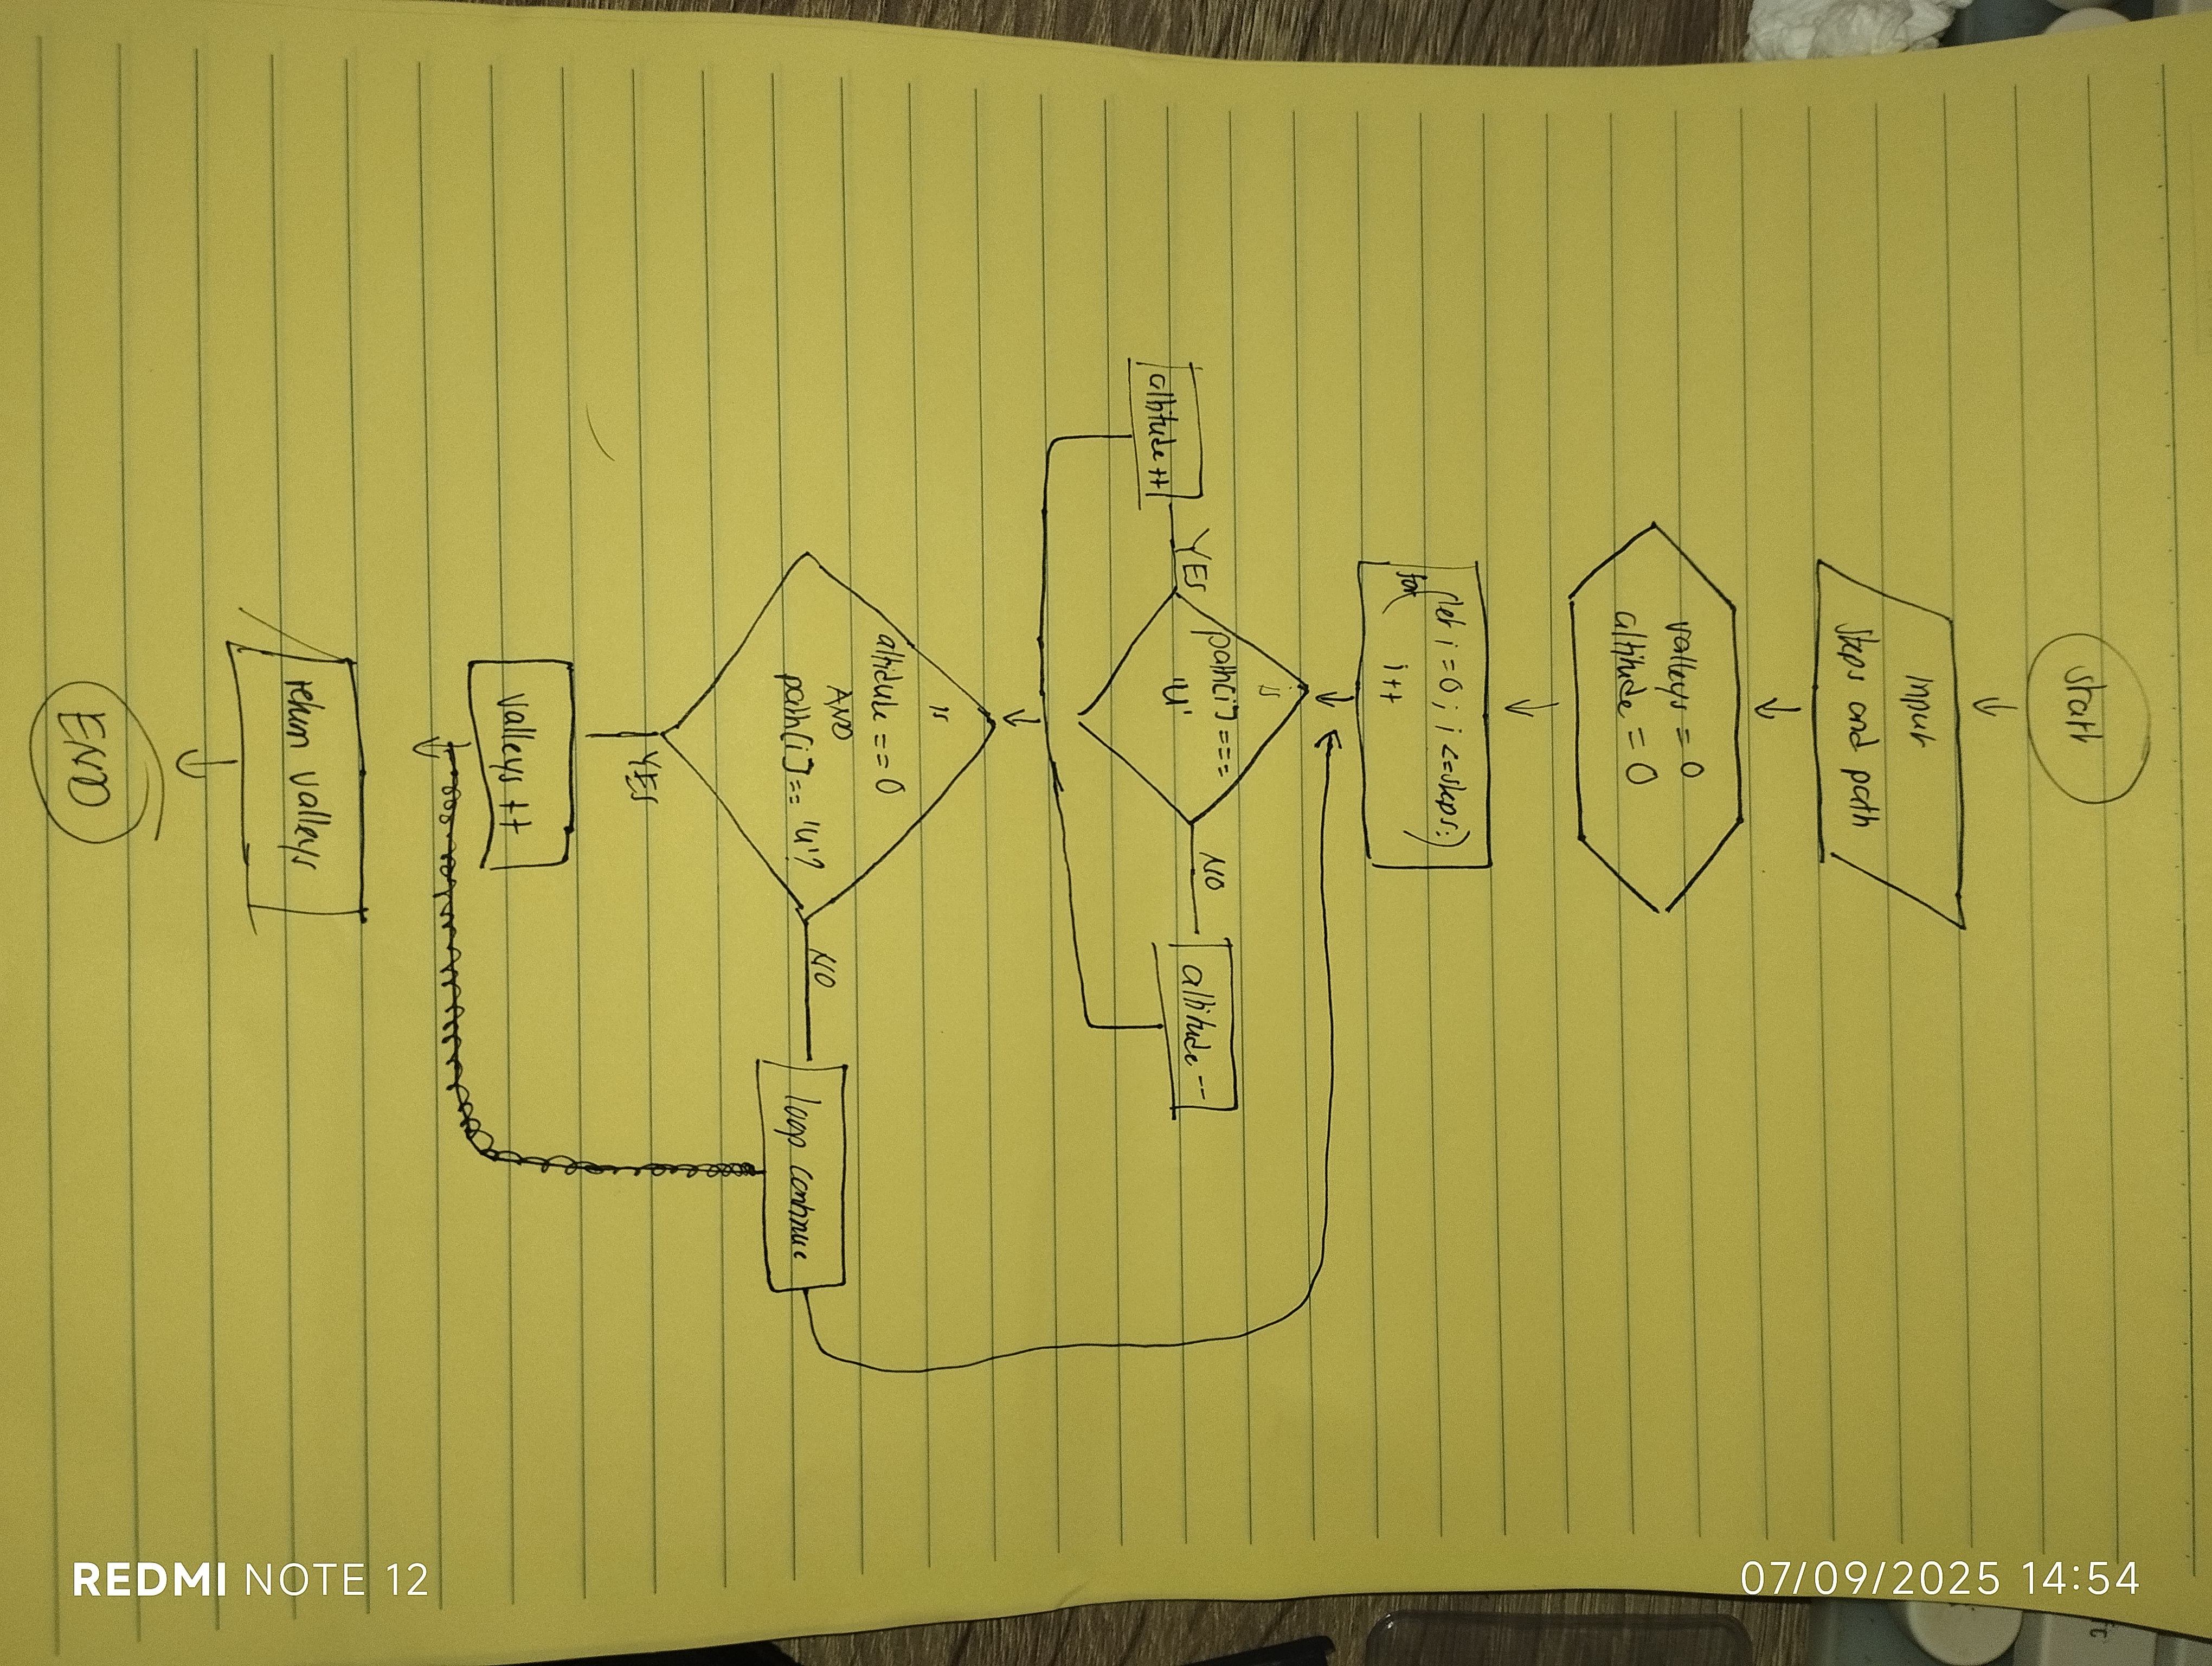 start
Input
steps and path
valleys = 0
altitude = 0
for (let i = 0; i <= steps;)
i++
is
path[i] ===
'U'
YES
NO
altitude ++
altitude --
is
altidule == 0
AND
path[i] == 'u'?
NO
loop continue
YES
valleys ++
return valleys
END
REDMI NOTE 12
07/09/2025 14:54